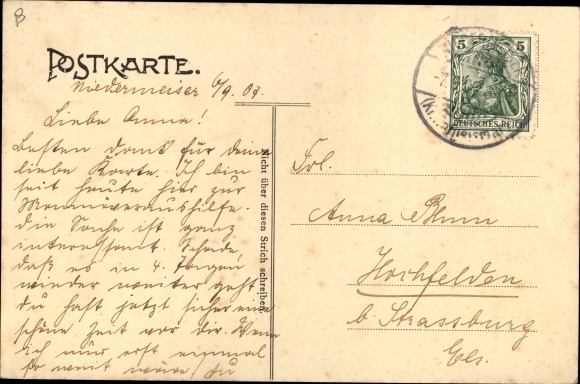 B
POSTKARTE.
Niedermeiser 6/9. 09.
Liebe Anna!
Besten Dank für deine
liebe Karte. Ich bin
seit heute hier zur
Manöveraushilfe.
Die Sache ist ganz
interessant. Schade,
daß es in 4 Tagen
wieder weiter geht.
Du hast jetzt sicher eine
schöne Zeit vor dir. Wenn
ich nur erst einmal
so weit wäre! Du
Nicht über diesen Strich schreiben
5 5
DEUTSCHES REICH
Frl.
Anna Blum
Hochfelden
b. Strassburg
Els.